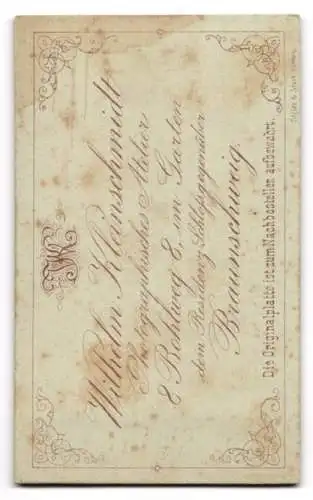 WK
Wilhelm Kleinschmidt
Photographisches Atelier
8 Bohlweg 8, im Garten
dem Residenz-Schloß gegenüber
Braunschweig.
Die Originalplatte ist zum Nachbestellen aufbewahrt.